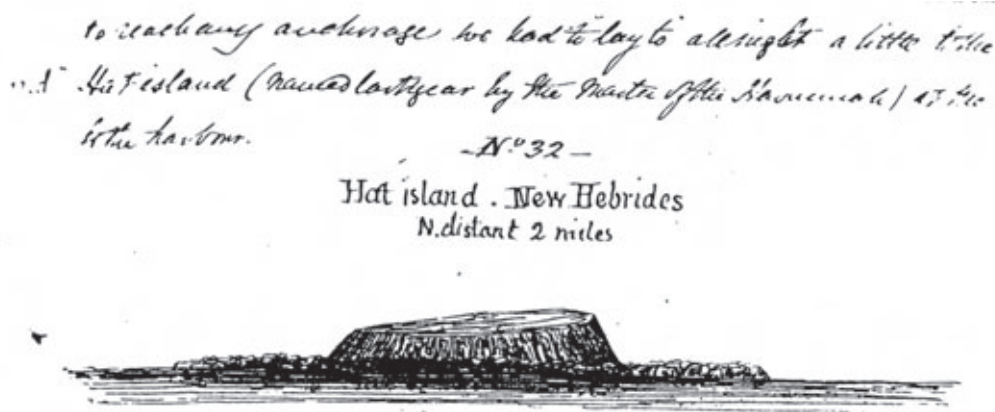 to reach any anchorage we had to lay to all night a little to the
Hat island (named last year by the Master of the Havannah) at the
to the harbour.
- Nº 32 -
Hat island . New Hebrides
N. distant 2 miles